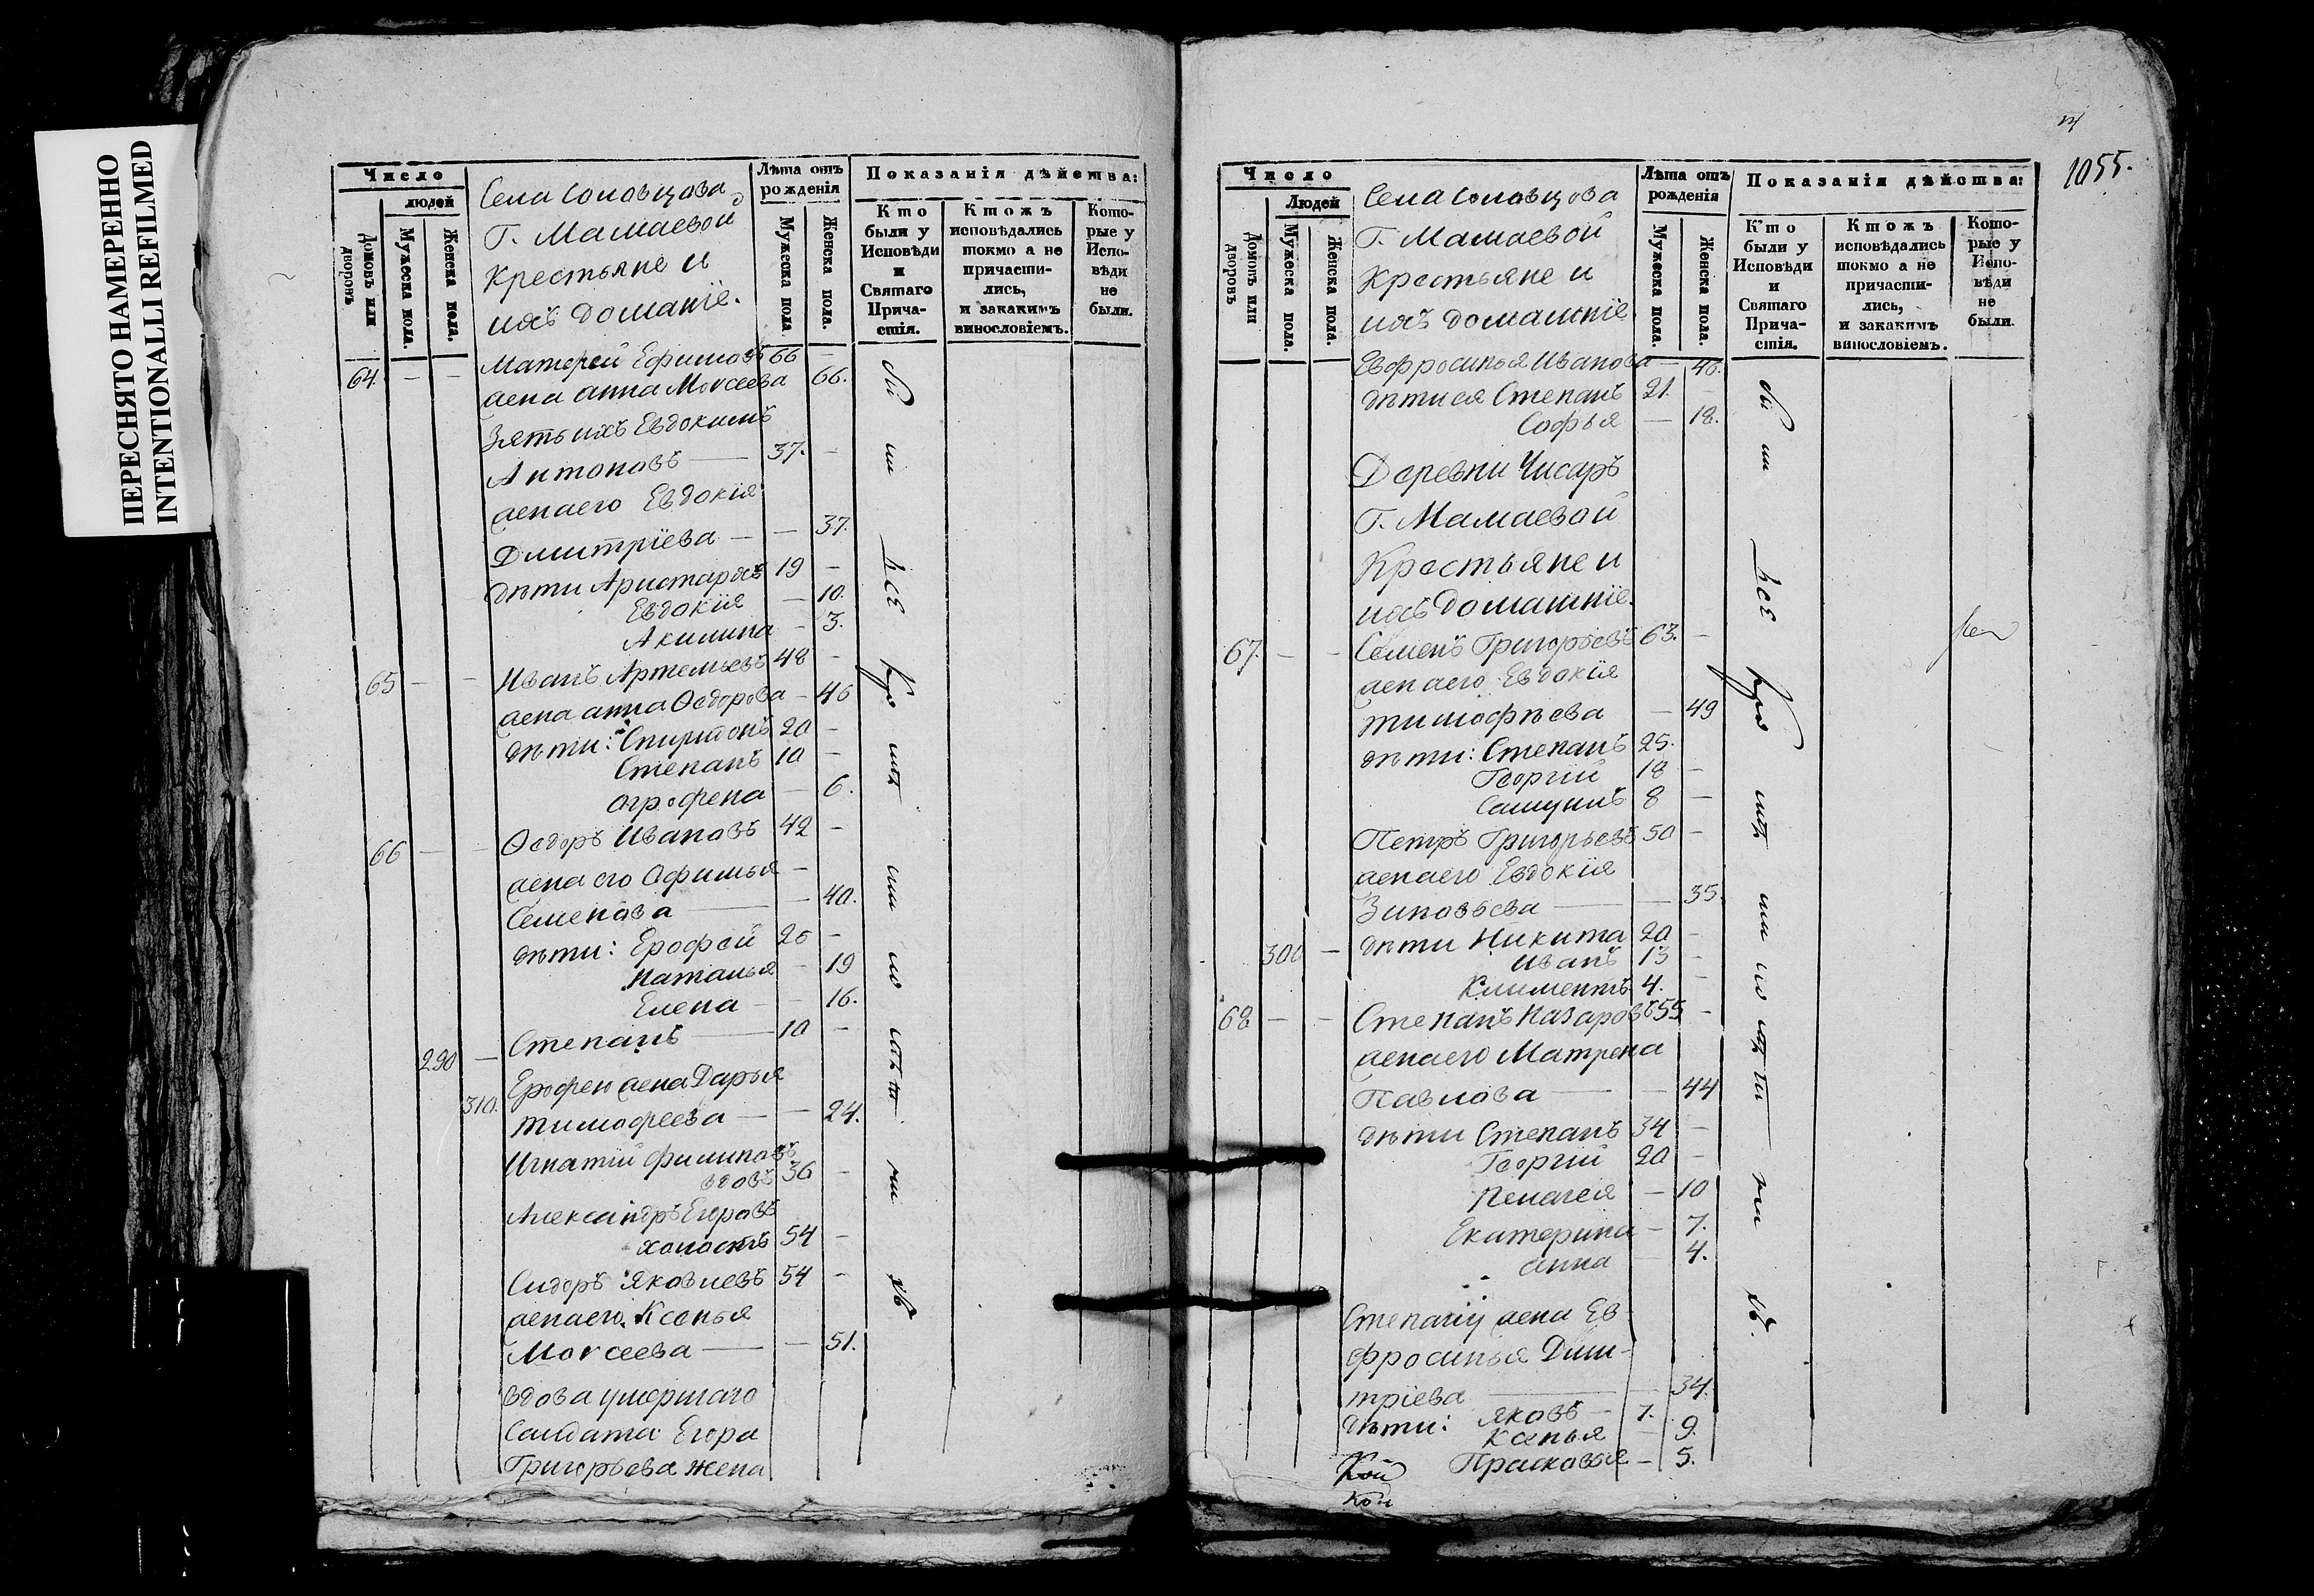 ПЕРЕСНЯТО НАМЕРЕННО
INTENTIONALLI REFILMED
Число
людей
Домовъ или дворовъ
Мужеска пола.
Женска пола.
Села Соловцова
Г. Мамаевой
Крестьяне и
ихъ домашнїе.
Лѣта отъ рожденія
Мужеска пола.
Женска пола.
Показанія дѣйства:
Кто были у Исповѣди и Святаго Прича-стія.
Ктожъ исповѣдались токмо а не причасти-лись, и закакимъ винословіемъ.
Кото-рые у Испо-вѣди не были.
64. — — Матфей Ефимовъ 66 —
жена анна Мокеева 66.
Зять ихъ Евдокимъ
Антоновъ — 37. —
жена его Евдокїя
Дмитрїева — — 37.
дѣти Аристархъ 19 —
Евдокїя — 10.
Акилина — 3.
65 — — Иванъ Артемьевъ 48 —
жена анна Ѳедорова — 46
дѣти: Спиридонъ 20 —
Степанъ 10 —
агрофена — 6.
66 — — Ѳедоръ Ивановъ 42 —
жена его Афимья —
Семенова — — 40.
дѣти: Ерофей 26 —
Наталья — 19
Елена — 16.
Степанъ — 10 —
290 —
310. Ерофею жена Дарья
тимофеева — — 24.
Игнатїй филиповъ
вдовъ 36 —
Александръ Егоровъ
холостъ 54 —
Сидоръ Яковлевъ 54 —
жена его Ксенья
Мокеева — — 51.
вдова умершаго
Салдата Егора
Григорьева жена
были Всѣ
1055.
Число
Людей
Домовъ или дворовъ
Мужеска пола.
Женска пола.
Села Соловцова
Г. Мамаевой
Крестьяне и
ихъ домашнїе
Лѣта отъ рожденія
Мужеска пола.
Женска пола.
Показанія дѣйства:
Кто были у Исповѣди и Святаго Прича-стія.
Ктожъ исповѣдались токмо а не причасти-лись, и закакимъ винословіемъ.
Кото-рые у Испо-вѣди не были.
Евфросинья Иванова — 40.
дѣти ея Степанъ 21. —
Софья — 18.
Деревни Чисаръ
Г. Мамаевой
Крестьяне и
ихъ домашнїе.
67. — — Семенъ Григорьевъ 63. —
жена его Евдокїя
тимофѣева — 49
дѣти: Степанъ 25.
Георгїй 18 —
Самуилъ 8 —
Петръ Григорьевъ 50 —
жена его Евдокїя
Зиновьева — — 35
300 — дѣти Никита 20 —
Иванъ 13 —
Климентъ 4. —
68 — — Степанъ Назаровъ 55 —
жена его Матрена
Павлова — — 44
дѣти Степанъ 34 —
Георгїй 20 —
Пелагея — 10
Екатерина — 7.
анна — 4.
Степану жена Ев-
фросинья Дми-
трїева — — 34.
дѣти: Яковъ — 7.
Ксенья — 9.
Прасковья — 5.
были Всѣ